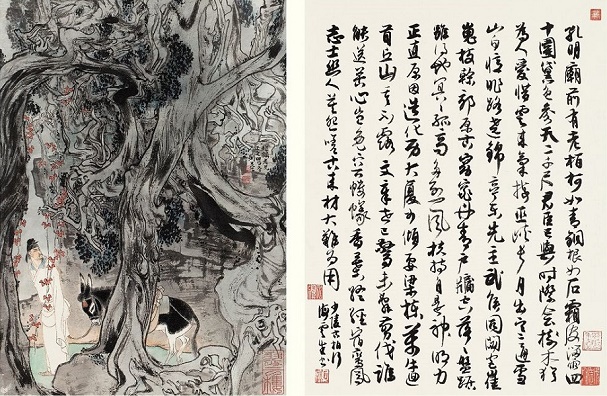 孔明廟前有老柏柯如青銅根如石霜皮溜雨四
十圍黛色參天二千尺君臣已與時際會樹木猶
為人愛惜雲來氣接巫峽長月出寒通雪
山白憶昨路繞錦亭東先主武侯同閟宮崔
嵬枝幹郊原古窈窕丹青戶牖空落落盤踞
雖得地冥冥孤高多烈風扶持自是神明力
正直原因造化功大廈如傾要梁棟萬牛回
首丘山重不露文章世已驚未辭翦伐誰
能送苦心豈免容螻蟻香葉終經宿鸞鳳
志士幽人莫怨嗟古來材大難為用
少陵古柏行